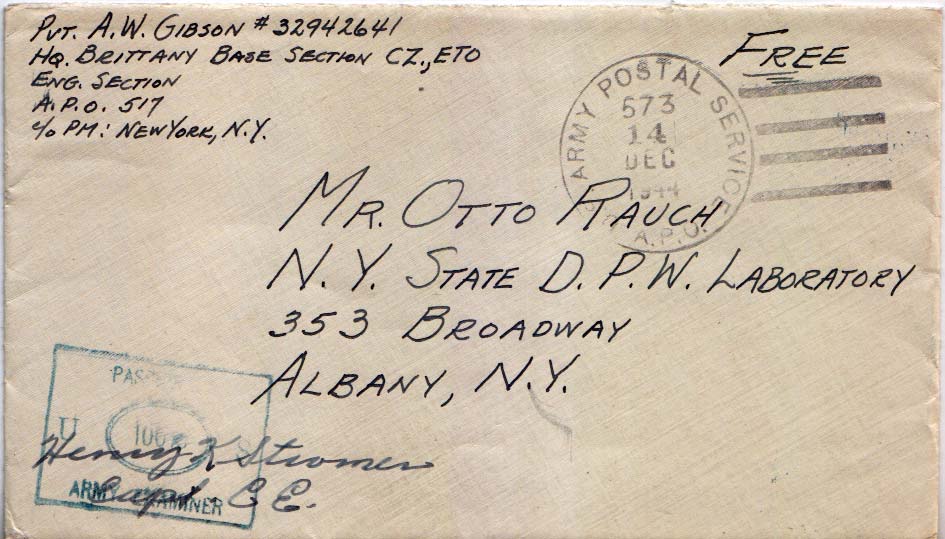 PVT. A.W. GIBSON #32942641
HQ. BRITTANY BASE SECTION CZ., ETO
ENG. SECTION
A.P.O. 517
c/o PM: NEW YORK, N.Y.
FREE
ARMY POSTAL SERVICE
573
14
DEC
1944
A.P.O.
MR. OTTO RAUCH
N.Y. STATE D.P.W. LABORATORY
353 BROADWAY
ALBANY, N.Y.
U S
Henry K Stromer
Capt. C E.
ARMY EXAMINER